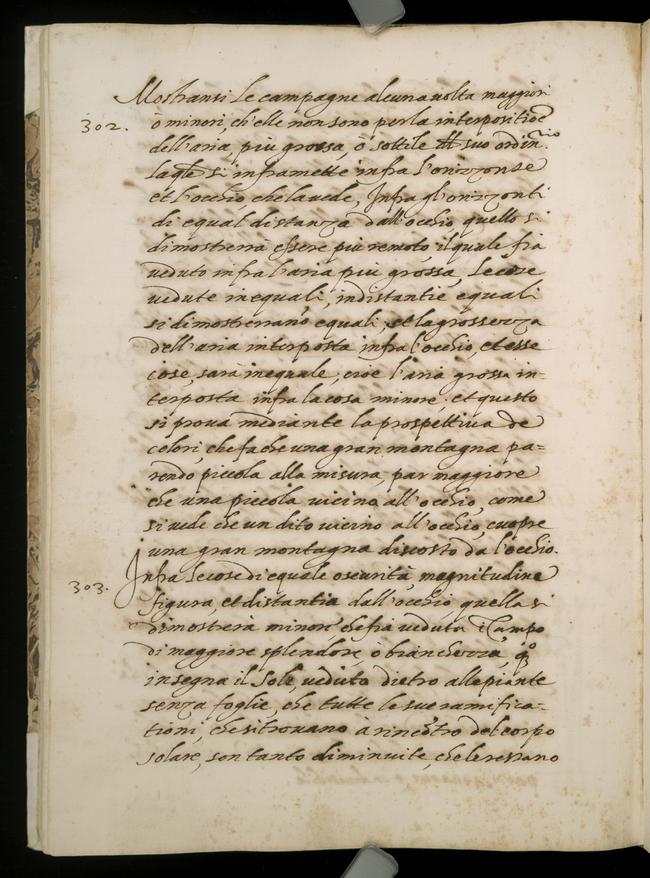 Mostransi le campagne alcuna uolta maggiori
302. ò minori, ch'elle non sono per la interpositioe
dell'aria, piu grossa, ò sottile del suo ordin.rio
laqle si inframette infra l'orizonte
et l'occhio che la uede, Infra gl'orizzonti
di equal distanza dall'occhio, quello si
dimostrera essere piu remoto, il quale fia
ueduto infra l'aria piu grossa, Le cose
uedute inequali, in distantie equali
si dimosterrano equali, et la grossezza
dell'aria interposta infra l'occhio, et esse
cose, sara inequale, cioe l'aria grossa in-
terposta infra la cosa minore, et questo
si proua mediante la prospettiua de
colori, che fa che una gran montagna pa-
rendo piccola alla misura, par maggiore
che una piccola uicina all'occhio, come
si uede che un dito uicino all'occhio, cuopre
una gran montagna discosto da l'occhio.
303. Infra le cose di equale oscurità, magnitudine
figura, et distantia dall'occhio quella si
dimostrerà minor, che fia ueduta i Campo
di maggiore splendore, o bianchezza, qo
insegna il Sole, ueduto dietro alle piante
senza foglie, che tutte le sue ramifica-
tioni, che si trouano à rincõtro del corpo
solare, son tanto diminuite, che le restano